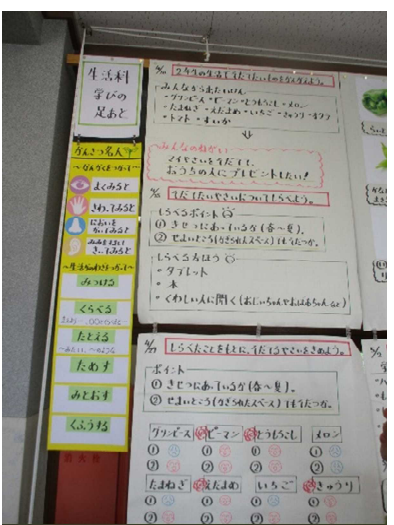 生活科
学びの
足あと
かんさつ名人
よくみると
さわってみると
においを
かいでみると
みつける
くらべる
たとえる
ためす
みとおす
くふうする
2年生の生活でそだてたいものをかんがえよう。
みんなから出たやさい
・グリンピース・ピーマン・とうもろこし・メロン
・たまねぎ・えだまめ・いちご・きゅうり・オクラ
・トマト・すいか
みんなのねがい
マイやさいをそだてて、
おうちの人にプレゼントしたい!
そだてたいやさいについてしらべよう。
しらべるポイント
① きせつにあっているか(春~夏)。
② せまいところ(かぎられたスペース)でもそだつか。
しらべるほうほう
・タブレット
・本
・くわしい人に聞く(おじいちゃんやおばあちゃんなど)
4/27 しらべたことをもとに、そだてるやさいをきめよう。
ポイント
① きせつにあっているか(春~夏)。
② せまいところ(かぎられたスペース)でもそだつか。
グリンピース ピーマン とうもろこし メロン
① ① ① ①
② ② ② ②
たまねぎ えだまめ いちご きゅうり
① ① ① ①
② ② ② ②